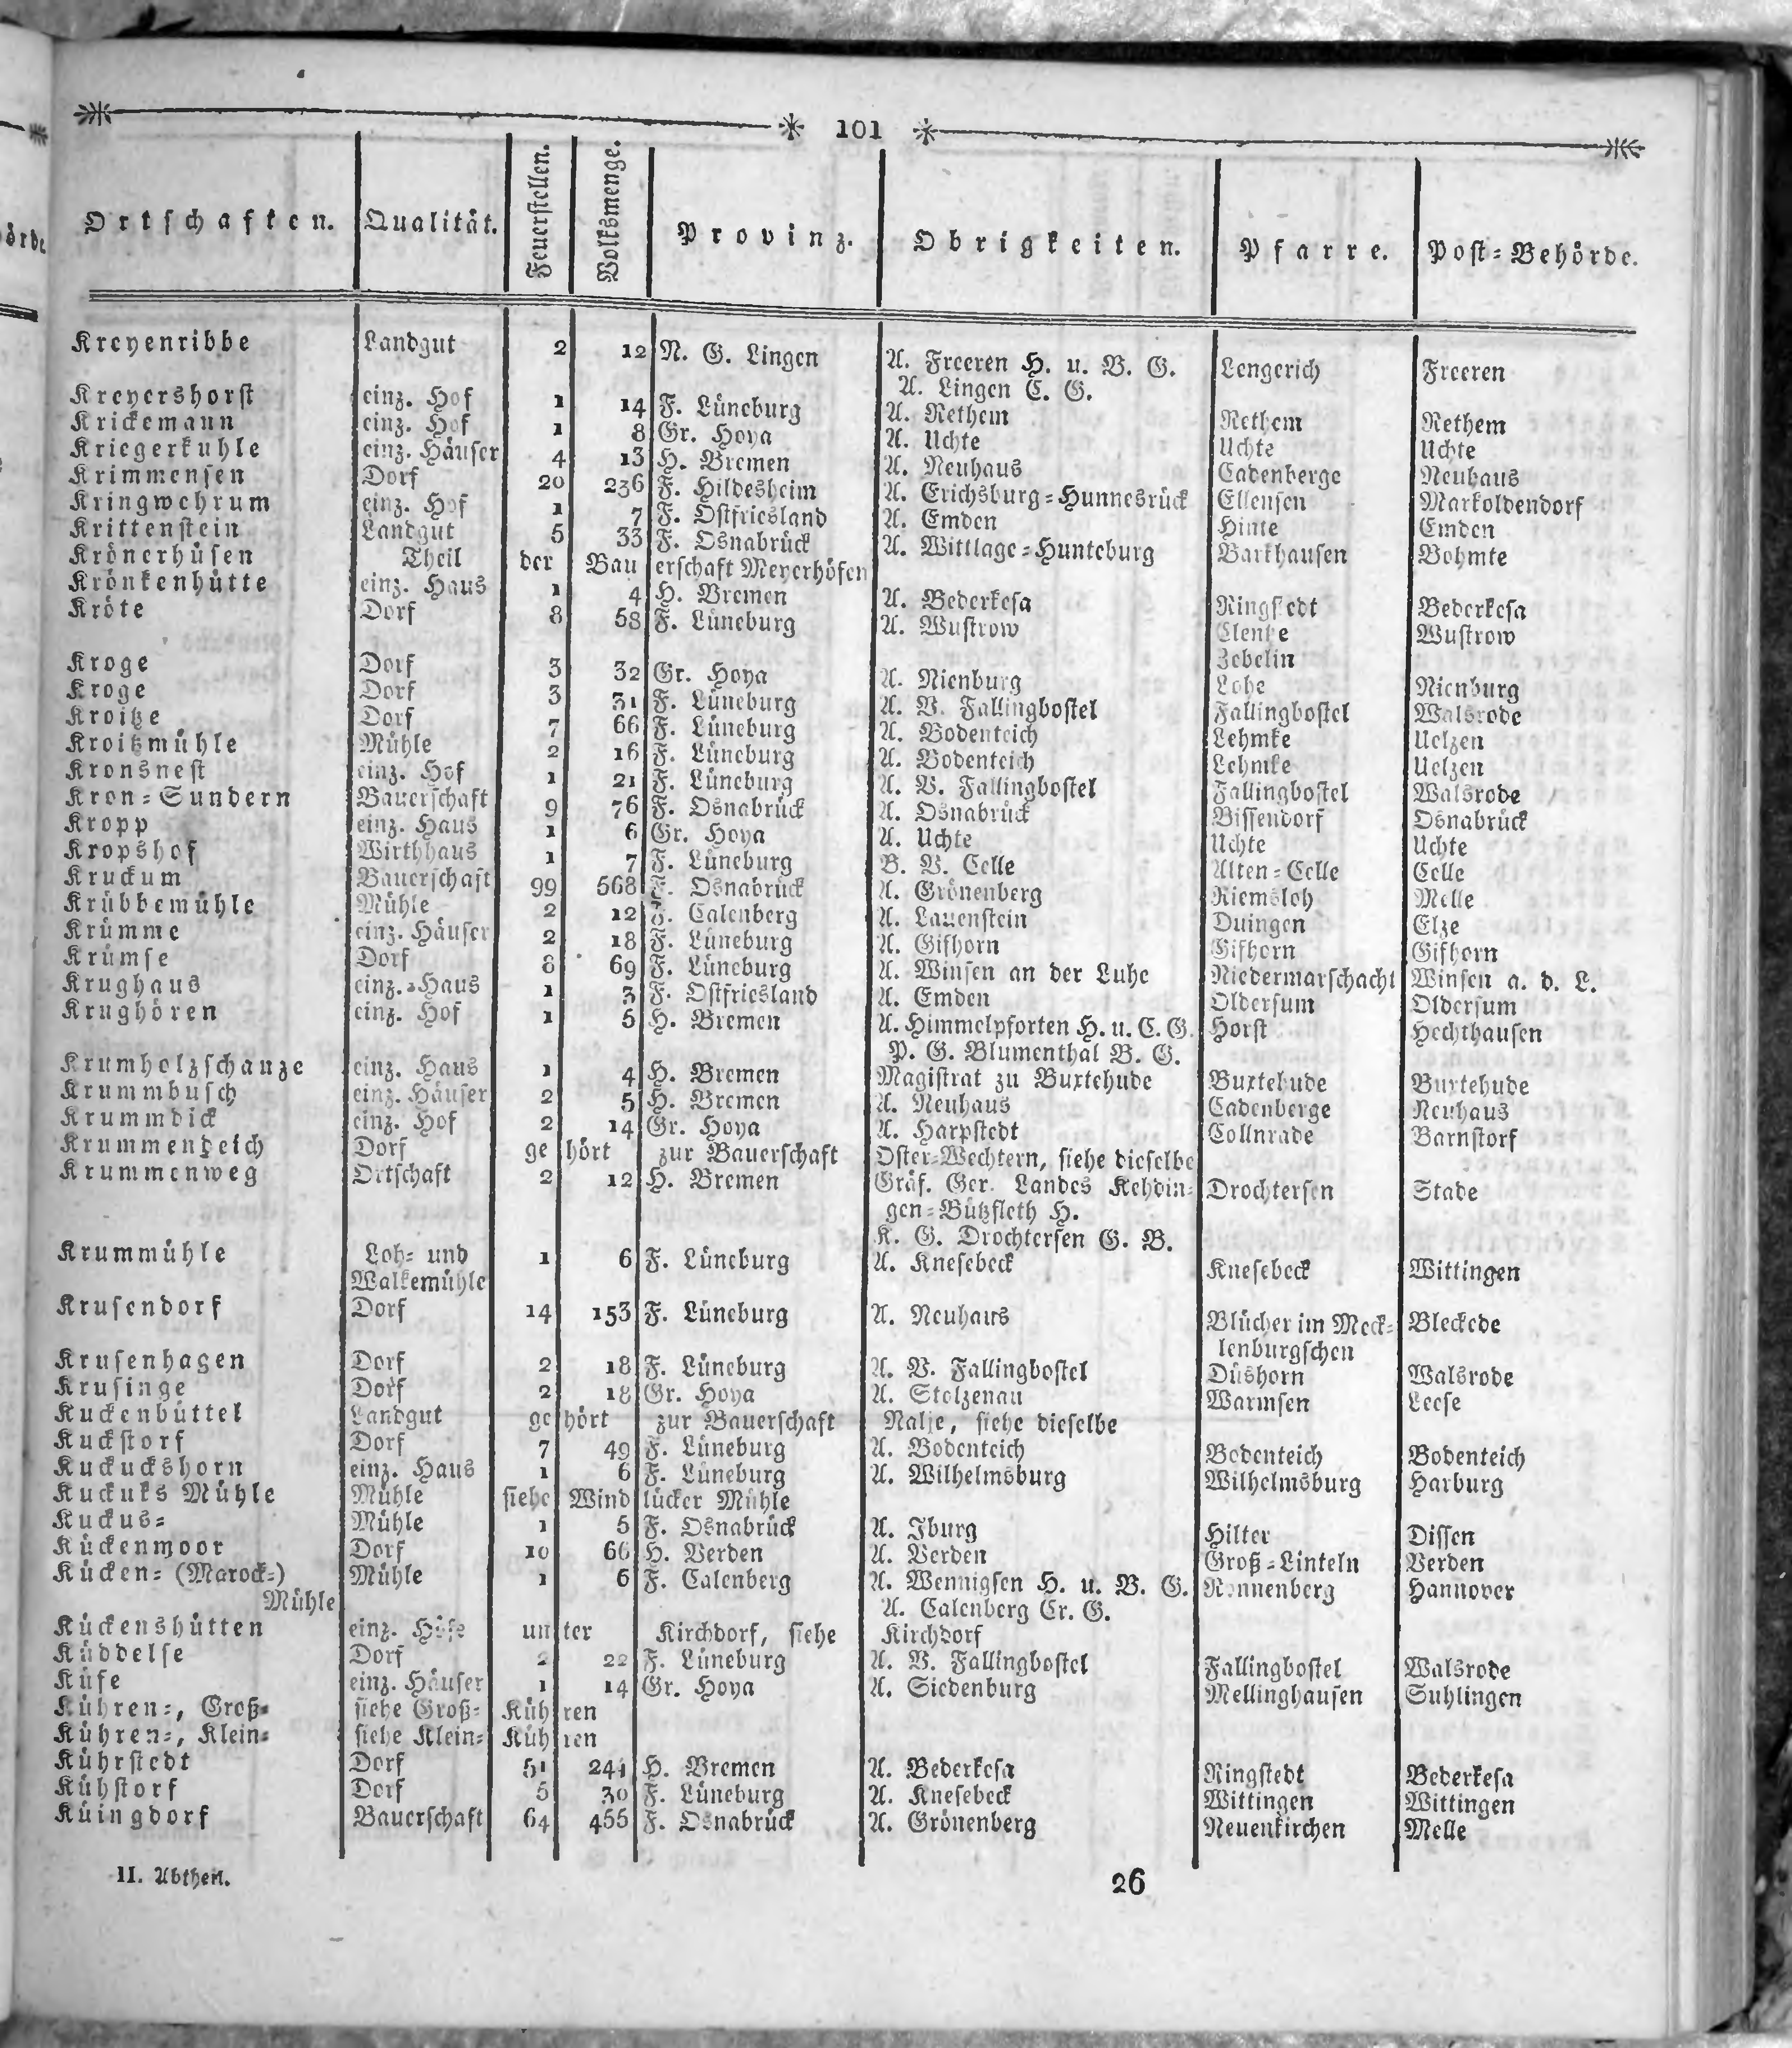 101
Ortschaften. Qualität. Feuerstellen. Volksmenge. Provinz. Obrigkeiten. Pfarre. Post=Behörde.
Kreyenribbe Landgut 2 12 N. G. Lingen A. Freeren H. u. B. G. Lengerich Freeren
A. Lingen C. G.
Kreyershorst einz. Hof 1 14 F. Lüneburg A. Rethem Rethem Rethem
Krickemann einz. Hof 1 8 Gr. Hoya A. Uchte Uchte Uchte
Kriegerkuhle einz. Häuser 4 13 H. Bremen A. Neuhaus Cadenberge Neuhaus
Krimmensen Dorf 20 236 F. Hildesheim A. Erichsburg=Hunnesrück Ellensen Markoldendorf
Kringwehrum einz. Hof 1 7 F. Ostfriesland A. Emden Hinte Emden
Krittenstein Landgut 5 33 F. Osnabrück A. Wittlage=Hunteburg Barkhausen Bohmte
Krönerhüsen Theil der Bauerschaft Meyerhöfen
Krönkenhütte einz. Haus 1 4 H. Bremen A. Bederkesa Ringstedt Bederkesa
Kröte Dorf 8 58 F. Lüneburg A. Wustrow Clenke Wustrow
Zebelin
Kroge Dorf 3 32 Gr. Hoya A. Nienburg Lohe Nienburg
Kroge Dorf 3 31 F. Lüneburg A. V. Fallingbostel Fallingbostel Walsrode
Kroitze Dorf 7 66 F. Lüneburg A. Bodenteich Lehmke Uelzen
Kroitzmühle Mühle 2 16 F. Lüneburg A. Bodenteich Lehmke Uelzen
Kronsnest einz. Hof 1 21 F. Lüneburg A. V. Fallingbostel Fallingbostel Walsrode
Kron=Sundern Bauerschaft 9 76 F. Osnabrück A. Osnabrück Bissendorf Osnabrück
Kropp einz. Haus 1 6 Gr. Hoya A. Uchte Uchte Uchte
Kropshof Wirthhaus 1 7 F. Lüneburg B. V. Celle Alten=Celle Celle
Kruckum Bauerschaft 99 568 F. Osnabrück A. Grönenberg Riemsloh Melle
Krübbemühle Mühle 2 12 F. Calenberg A. Lauenstein Duingen Elze
Krümme einz. Häuser 2 18 F. Lüneburg A. Gifhorn Gifhorn Gifhorn
Krümse Dorf 8 69 F. Lüneburg A. Winsen an der Luhe Niedermarschacht Winsen a. d. L.
Krughaus einz. Haus 1 3 F. Ostfriesland A. Emden Oldersum Oldersum
Krughören einz. Hof 1 5 H. Bremen A. Himmelpforten H. u. C. G. Horst Hechthausen
P. G. Blumenthal B. G.
Krumholzschanze einz. Haus 1 4 H. Bremen Magistrat zu Buxtehude Buxtehude Buxtehude
Krummbusch einz. Häuser 2 5 H. Bremen A. Neuhaus Cadenberge Neuhaus
Krummdick einz. Hof 2 14 Gr. Hoya A. Harpstedt Collnrade Barnstorf
Krummendeich Dorf gehört zur Bauerschaft Oster=Wechtern, siehe dieselbe
Krummenweg Ortschaft 2 12 H. Bremen Gräf. Ger. Landes Kehdin= Drochtersen Stade
gen=Bützfleth H.
K. G. Drochtersen G. B.
Krummühle Loh= und 1 6 F. Lüneburg A. Knesebeck Knesebeck Wittingen
Walkemühle
Krusendorf Dorf 14 153 F. Lüneburg A. Neuhaus Blücher im Meck= Bleckede
lenburgschen
Krusenhagen Dorf 2 18 F. Lüneburg A. V. Fallingbostel Düshorn Walsrode
Krusinge Dorf 2 18 Gr. Hoya A. Stolzenau Warmsen Leese
Kuckenbüttel Landgut gehört zur Bauerschaft Nalje, siehe dieselbe
Kuckstorf Dorf 7 49 F. Lüneburg A. Bodenteich Bodenteich Bodenteich
Kuckuckshorn einz. Haus 1 6 F. Lüneburg A. Wilhelmsburg Wilhelmsburg Harburg
Kuckuks Mühle Mühle siehe Windlücker Mühle
Kuckus= Mühle 1 5 F. Osnabrück A. Iburg Hilter Dissen
Kückenmoor Dorf 10 66 H. Verden A. Verden Groß=Linteln Verden
Kücken= (Marock=) Mühle 1 6 F. Calenberg A. Wennigsen H. u. B. G. Ronnenberg Hannover
Mühle A. Calenberg Cr. G.
Kückenshütten einz. Höfe unter Kirchdorf, siehe Kirchdorf
Küddelse Dorf 2 22 F. Lüneburg A. V. Fallingbostel Fallingbostel Walsrode
Küfe einz. Häuser 1 14 Gr. Hoya A. Siedenburg Mellinghausen Suhlingen
Kühren=, Groß= siehe Groß=Kühren
Kühren=, Klein= siehe Klein=Kühren
Kührstedt Dorf 51 241 H. Bremen A. Bederkesa Ringstedt Bederkesa
Kühstorf Dorf 5 30 F. Lüneburg A. Knesebeck Wittingen Wittingen
Küingdorf Bauerschaft 64 455 F. Osnabrück A. Grönenberg Neuenkirchen Melle
II. Abtheil. 26